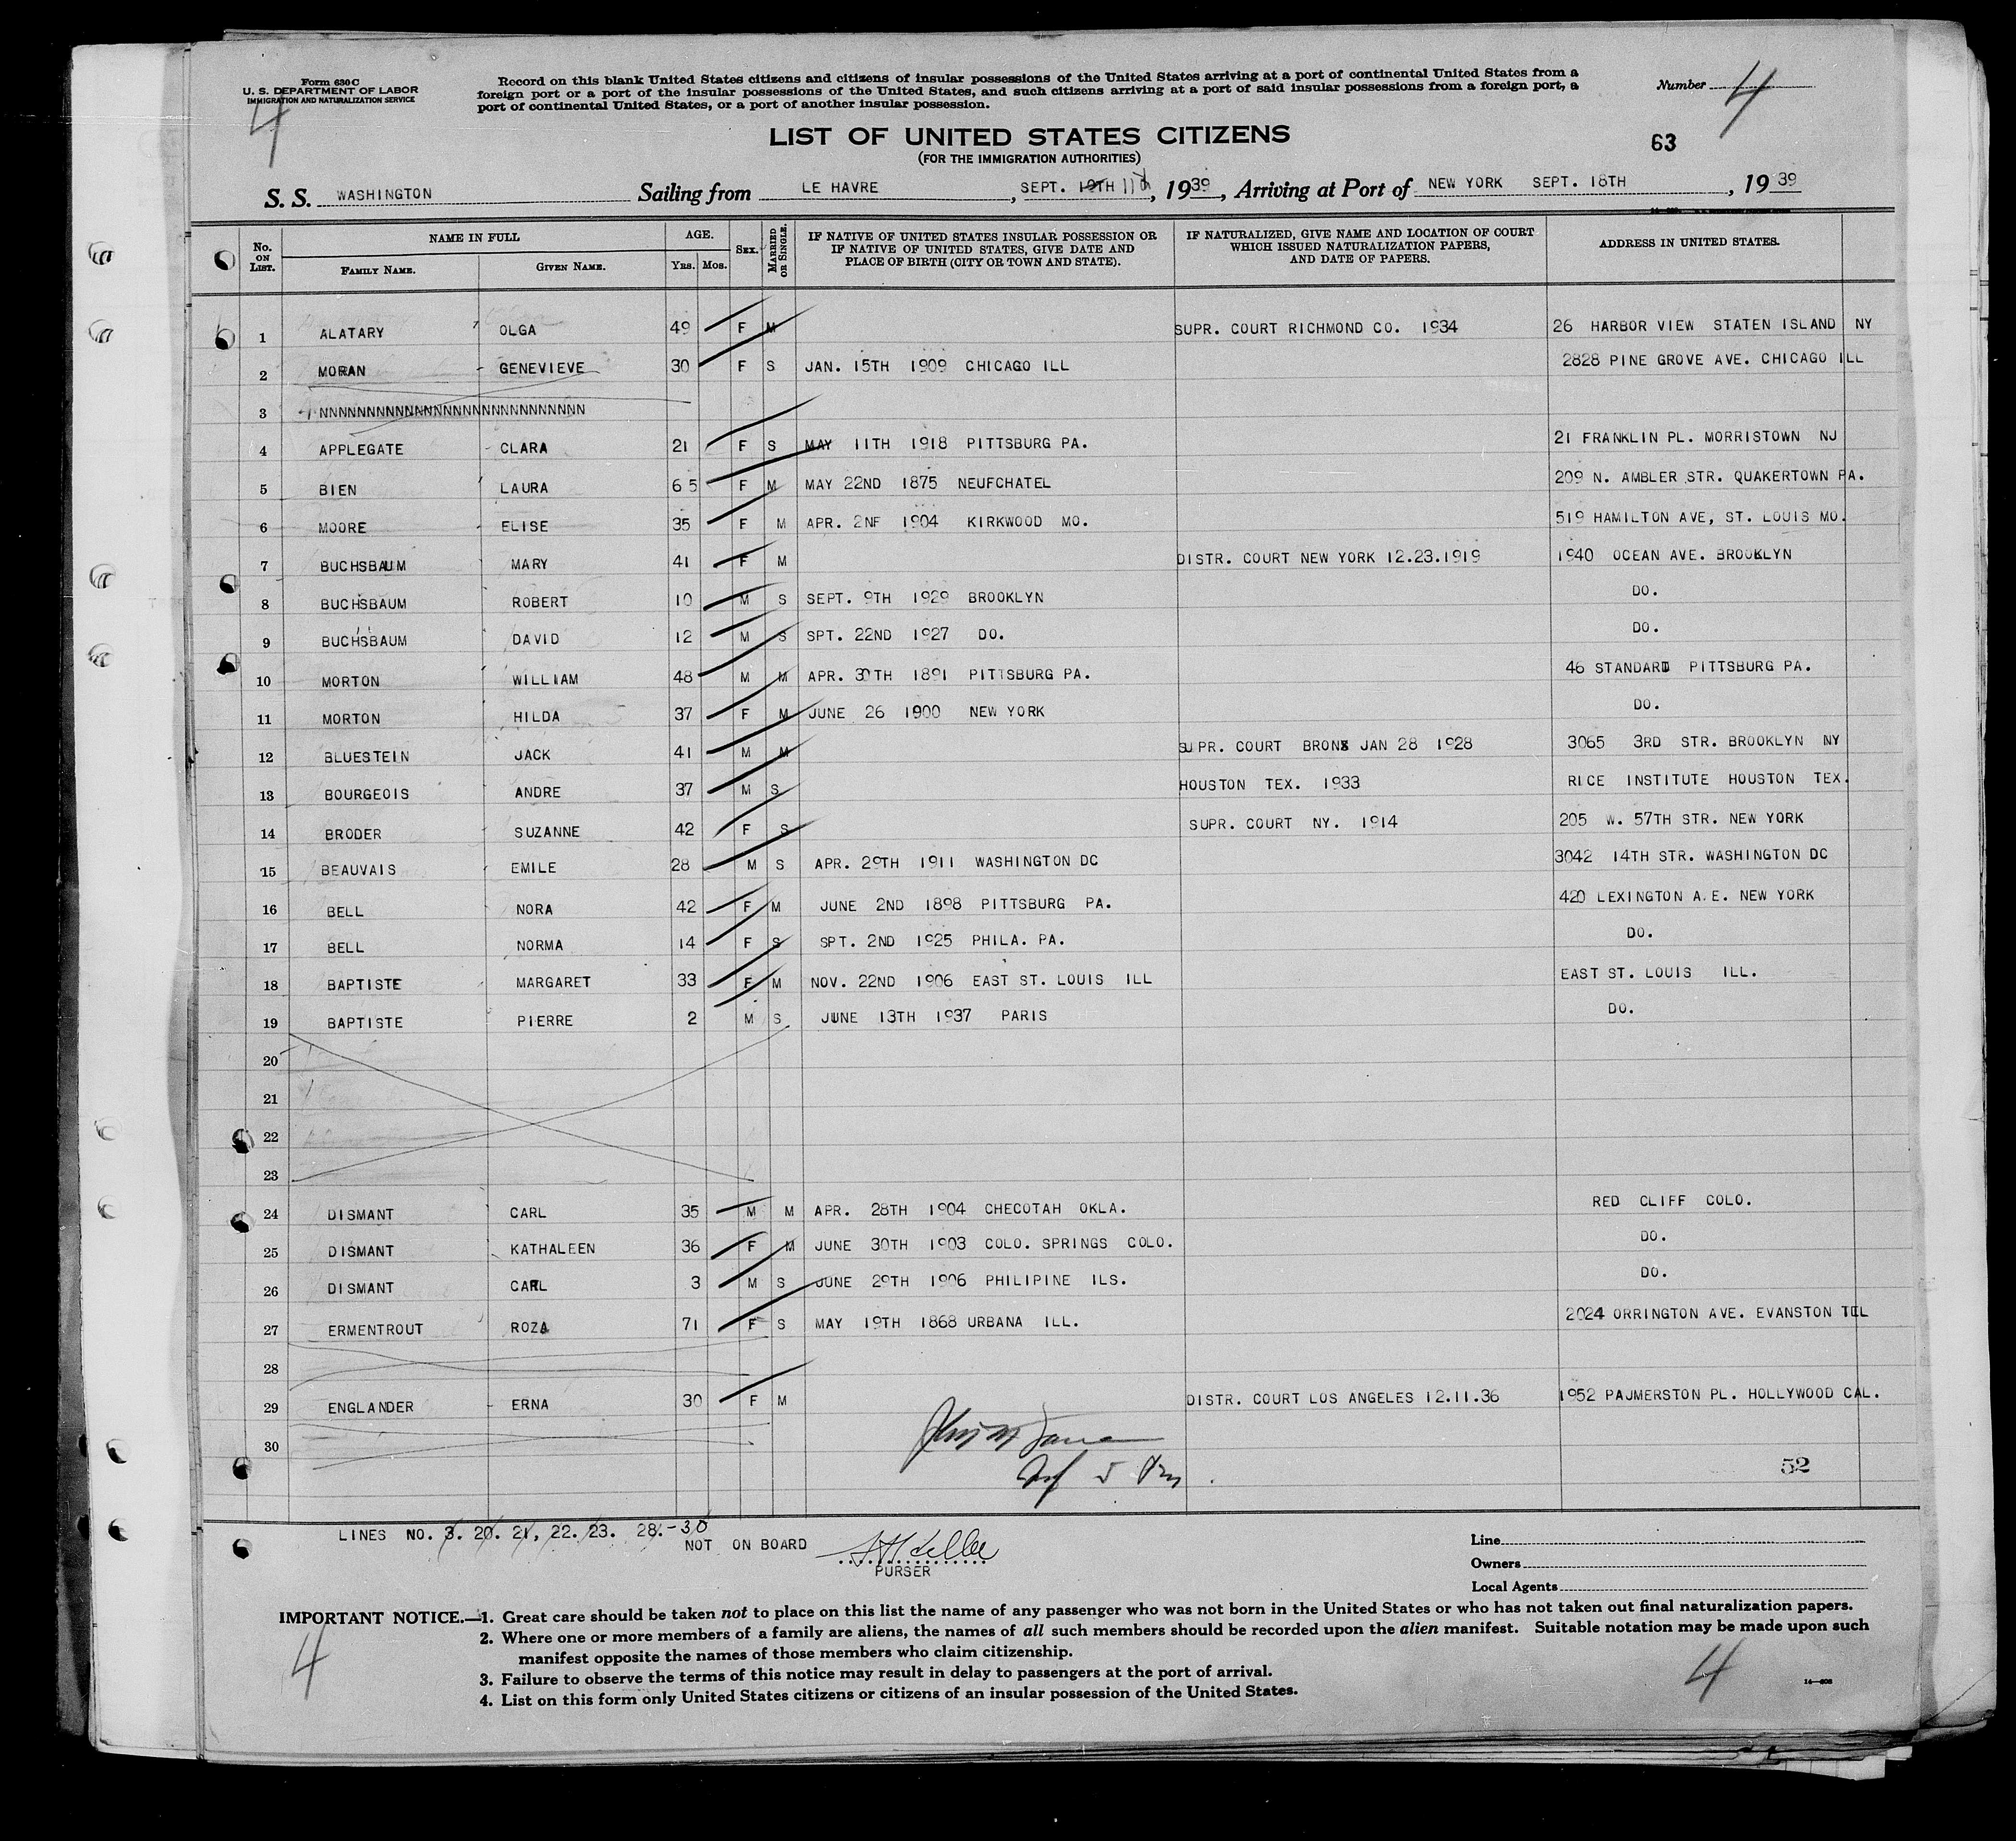 Form 630C
U. S. DEPARTMENT OF LABOR
IMMIGRATION AND NATURALIZATION SERVICE
4
Record on this blank United States citizens and citizens of insular possessions of the United States arriving at a port of continental United States from a
foreign port or a port of the insular possessions of the United States, and such citizens arriving at a port of said insular possessions from a foreign port, a
port of continental United States, or a port of another insular possession.
Number 4
LIST OF UNITED STATES CITIZENS
(FOR THE IMMIGRATION AUTHORITIES)
63
S. S. WASHINGTON Sailing from LE HAVRE, SEPT. 19TH 11th, 1939, Arriving at Port of NEW YORK SEPT. 18TH, 1939
No. ON LIST. NAME IN FULL FAMILY NAME. GIVEN NAME. AGE. YRS. MOS. SEX. MARRIED OR SINGLE. IF NATIVE OF UNITED STATES INSULAR POSSESSION OR IF NATIVE OF UNITED STATES, GIVE DATE AND PLACE OF BIRTH (CITY OR TOWN AND STATE). IF NATURALIZED, GIVE NAME AND LOCATION OF COURT WHICH ISSUED NATURALIZATION PAPERS, AND DATE OF PAPERS. ADDRESS IN UNITED STATES.
1 ALATARY OLGA 49 F M SUPR. COURT RICHMOND CO. 1934 26 HARBOR VIEW STATEN ISLAND NY
2 MORAN GENEVIEVE 30 F S JAN. 15TH 1909 CHICAGO ILL 2828 PINE GROVE AVE. CHICAGO ILL
3 NNNNNNNNNNNNNNNNNNNNNNNNNNNN
4 APPLEGATE CLARA 21 F S MAY 11TH 1918 PITTSBURG PA. 21 FRANKLIN PL. MORRISTOWN NJ
5 BIEN LAURA 65 F M MAY 22ND 1875 NEUFCHATEL 209 N. AMBLER STR. QUAKERTOWN PA.
6 MOORE ELISE 35 F M APR. 2NF 1904 KIRKWOOD MO. 519 HAMILTON AVE, ST. LOUIS MO.
7 BUCHSBAUM MARY 41 F M DISTR. COURT NEW YORK 12.23.1919 1940 OCEAN AVE. BROOKLYN
8 BUCHSBAUM ROBERT 10 M S SEPT. 9TH 1929 BROOKLYN DO.
9 BUCHSBAUM DAVID 12 M S SPT. 22ND 1927 DO. DO.
10 MORTON WILLIAM 48 M M APR. 30TH 1891 PITTSBURG PA. 46 STANDARD PITTSBURG PA.
11 MORTON HILDA 37 F M JUNE 26 1900 NEW YORK DO.
12 BLUESTEIN JACK 41 M M SUPR. COURT BRONX JAN 28 1928 3065 3RD STR. BROOKLYN NY
13 BOURGEOIS ANDRE 37 M S HOUSTON TEX. 1933 RICE INSTITUTE HOUSTON TEX.
14 BRODER SUZANNE 42 F S SUPR. COURT NY. 1914 205 W. 57TH STR. NEW YORK
15 BEAUVAIS EMILE 28 M S APR. 29TH 1911 WASHINGTON DC 3042 14TH STR. WASHINGTON DC
16 BELL NORA 42 F M JUNE 2ND 1898 PITTSBURG PA. 420 LEXINGTON A.E. NEW YORK
17 BELL NORMA 14 F S SPT. 2ND 1925 PHILA. PA. DO.
18 BAPTISTE MARGARET 33 F M NOV. 22ND 1906 EAST ST. LOUIS ILL EAST ST. LOUIS ILL.
19 BAPTISTE PIERRE 2 M S JUNE 13TH 1937 PARIS DO.
20
21
22
23
24 DISMANT CARL 35 M M APR. 28TH 1904 CHECOTAH OKLA. RED CLIFF COLO.
25 DISMANT KATHALEEN 36 F M JUNE 30TH 1903 COLO. SPRINGS COLO. DO.
26 DISMANT CARL 3 M S JUNE 29TH 1906 PHILIPINE ILS. DO.
27 ERMENTROUT ROZA 71 F S MAY 19TH 1868 URBANA ILL. 2024 ORRINGTON AVE. EVANSTON ILL
28
29 ENGLANDER ERNA 30 F M DISTR. COURT LOS ANGELES 12.11.36 1952 PAJMERSTON PL. HOLLYWOOD CAL.
30
52
LINES NO. 3. 20. 21, 22. 23. 28.-30
NOT ON BOARD
PURSER
Line
Owners
Local Agents
IMPORTANT NOTICE.—1. Great care should be taken not to place on this list the name of any passenger who was not born in the United States or who has not taken out final naturalization papers.
2. Where one or more members of a family are aliens, the names of all such members should be recorded upon the alien manifest. Suitable notation may be made upon such
manifest opposite the names of those members who claim citizenship.
3. Failure to observe the terms of this notice may result in delay to passengers at the port of arrival.
4. List on this form only United States citizens or citizens of an insular possession of the United States.
4
4